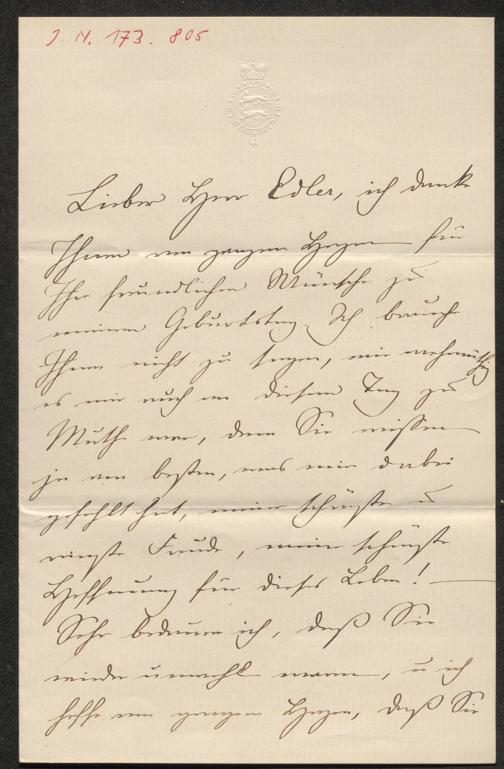 J. N. 173.805
Lieber Herr Edler, ich danke
Ihnen von ganzem Herzen für
Ihre freundlichen Wünsche zu
meinem Geburtstag. Ich brauche
Ihnen nicht zu sagen, wie wehmüthig
es mir auch an diesem Tag zu
Muthe war, denn Sie wissen
ja am besten, was mir dabei
gefehlt hat, meine schönste u
einzige Freude, meine schönste
Hoffnung für dieses Leben! —
Sehr bedaure ich, daß Sie
wieder unwohl waren, u ich
hoffe von ganzem Herzen, daß Sie